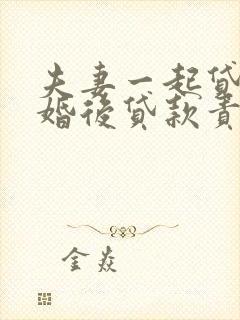 夫妻一起貸
婚後貸款責
金焱